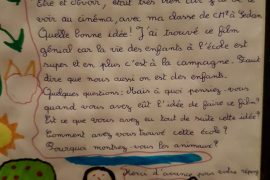 Etre et avoir, était très bien car j'ai été le
voir au cinéma, avec ma classe de CM² à Sedan
Quelle bonne idée! J'ai trouvé ce film
génial car la vie des enfants à l'école est
super et en plus c'est à la campagne. Faut
dire que nous aussi on est des enfants.
Quelques questions: Mais à quoi pensiez-vous
quand vous avez eût l'idée de faire ce film?
Est ce que vous avez eu tout de suite cette idée?
Comment avez vous trouvé cette école?
Pourquoi montrez-vous les animaux?
Merci d'avance pour votre répon